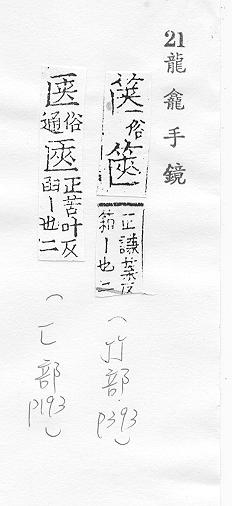 21 龍龕手鏡
篋俗篋正謙葉反
箱丨也二
(竹部 p393)
匧俗
通匧正苦叶反
丨也二
(匸部 p193)